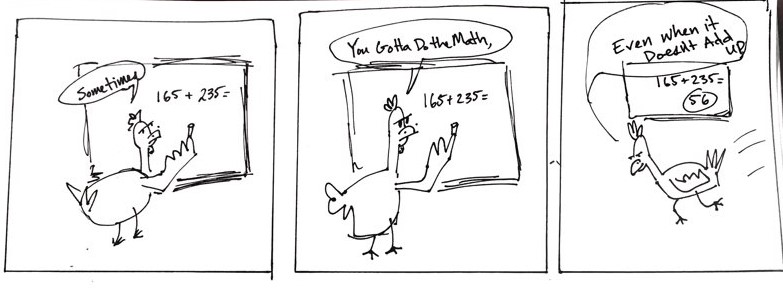 Sometimes
165 + 235=
You Gotta Do the Math,
165+235=
Even when it
Doesn't Add
up
165+235=
56